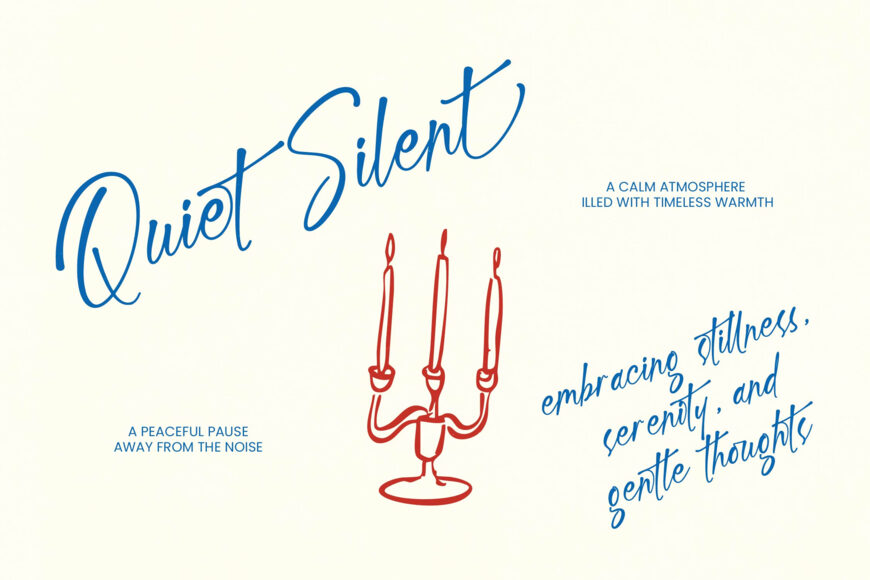 Quiet Silent
A CALM ATMOSPHERE
ILLED WITH TIMELESS WARMTH
A PEACEFUL PAUSE
AWAY FROM THE NOISE
embracing stillness,
serenity, and
gentle thoughts